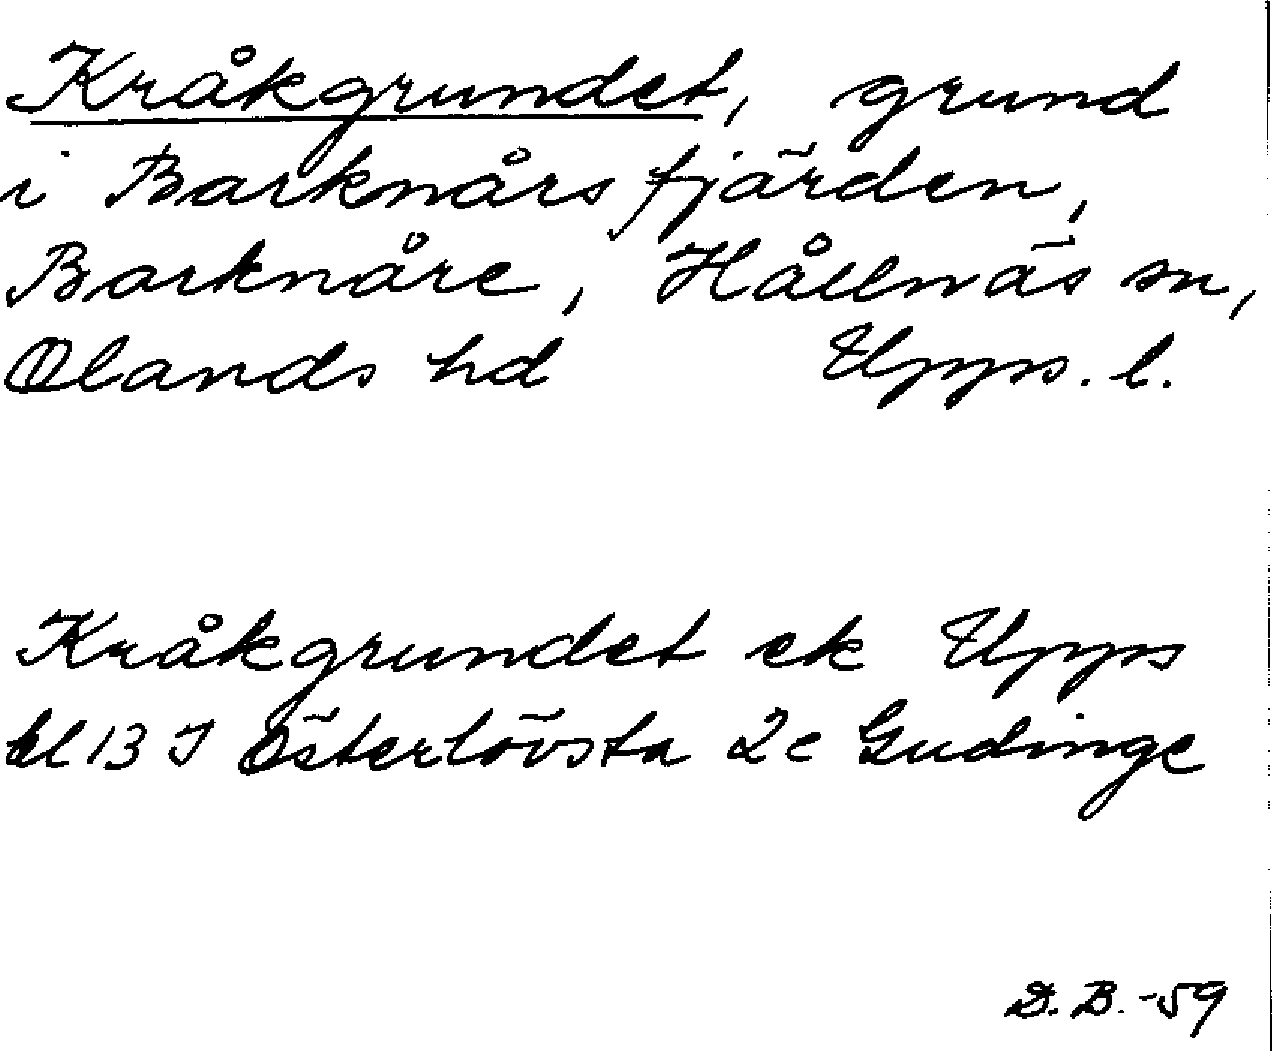 Kråkgrundet, grund
i Barknårsfjärden,
Barknåre, Hållnäs sn,
Olands hd Upps. l.
Kråkgrundet ek Upps
bl 13 J Österlövsta 2c Gudinge
D.B.-59